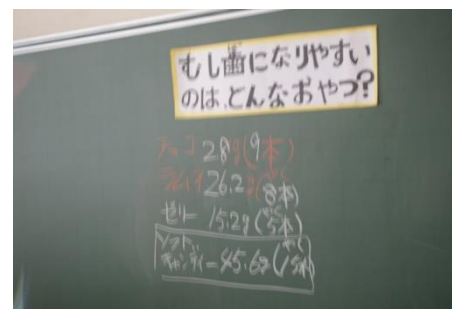 むし歯になりやすい
のは、どんなおやつ?
チョコ 28g(9本)
ラムネ 26.2g(約8本)
ゼリー 15.2g(約5本)
ソフト
キャンディー 45.6g(約15本)